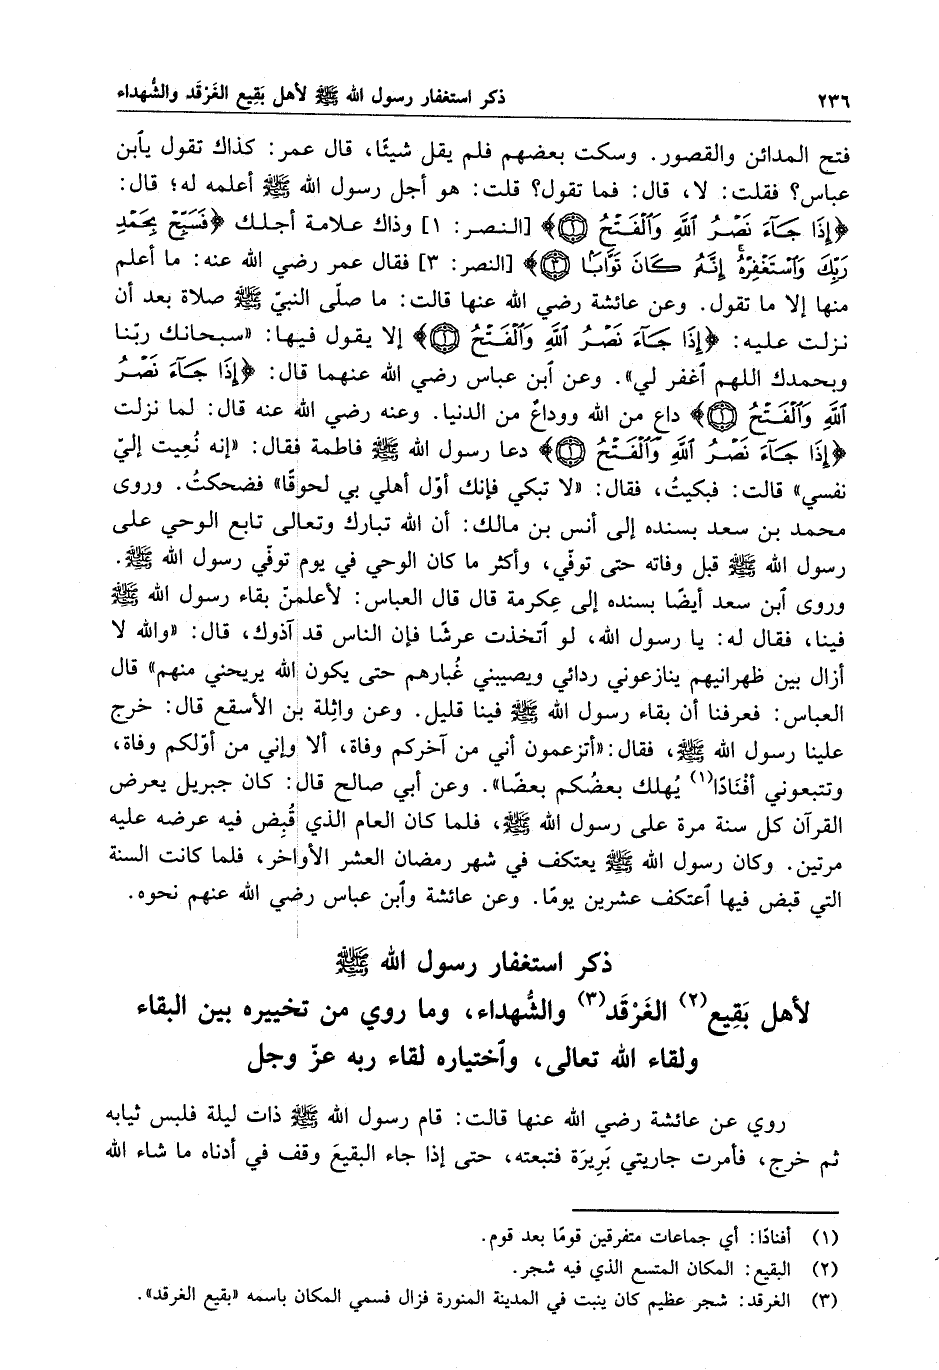 ٢٣٦ ذكر استغفار رسول الله ﷺ لأهل بَقِيع الغَرْقَد والشُّهداء
فتح المدائن والقصور. وسكت بعضهم فلم يقل شيئًا، قال عمر: كذاك تقول يٱبن
عباس؟ فقلت: لا، قال: فما تقول؟ قلت: هو أجل رسول الله ﷺ أعلمه له؛ قال:
﴿إِذَا جَآءَ نَصْرُ ٱللَّهِ وَٱلْفَتْحُ ﴿١﴾﴾ [النصر: ١] وذاك علامة أجلك ﴿فَسَبِّحْ بِحَمْدِ
رَبِّكَ وَٱسْتَغْفِرْهُ إِنَّهُۥ كَانَ تَوَّابًا ﴿٣﴾﴾ [النصر: ٣] فقال عمر رضي الله عنه: ما أعلم
منها إلا ما تقول. وعن عائشة رضي الله عنها قالت: ما صلّى النبيّ ﷺ صلاة بعد أن
نزلت عليه: ﴿إِذَا جَآءَ نَصْرُ ٱللَّهِ وَٱلْفَتْحُ ﴿١﴾﴾ إلا يقول فيها: «سبحانك ربّنا
وبحمدك اللهم ٱغفر لي». وعن ٱبن عباس رضي الله عنهما قال: ﴿إِذَا جَآءَ نَصْرُ
ٱللَّهِ وَٱلْفَتْحُ ﴿١﴾﴾ داع من الله ووداعٌ من الدنيا. وعنه رضي الله عنه قال: لما نزلت
﴿إِذَا جَآءَ نَصْرُ ٱللَّهِ وَٱلْفَتْحُ ﴿١﴾﴾ دعا رسول الله ﷺ فاطمة فقال: «إنه نُعِيت إليّ
نفسي» قالت: فبكيتُ، فقال: «لا تبكي فإنك أوّل أهلي بي لحوقًا» فضحكتُ. وروى
محمد بن سعد بسنده إلى أنس بن مالك: أن الله تبارك وتعالى تابع الوحي على
رسول الله ﷺ قبل وفاته حتى توفّي، وأكثر ما كان الوحي في يوم توفّي رسول الله ﷺ.
وروى ٱبن سعد أيضًا بسنده إلى عِكرمة قال قال العباس: لأعلمنّ بقاء رسول الله ﷺ
فينا، فقال له: يا رسول الله، لو ٱتخذت عرشًا فإن الناس قد آذوك، قال: «والله لا
أزال بين ظهرانيهم ينازعوني ردائي ويصيبني غُبارهم حتى يكون الله يريحني منهم» قال
العباس: فعرفنا أن بقاء رسول الله ﷺ فينا قليل. وعن واثِلة بن الأسقع قال: خرج
علينا رسول الله ﷺ، فقال: «أتزعمون أني من آخركم وفاة، ألا وإني من أوّلكم وفاة،
وتتبعوني أفْنَادًا(١) يُهلك بعضُكم بعضًا». وعن أبي صالح قال: كان جبريل يعرض
القرآن كل سنة مرة على رسول الله ﷺ، فلما كان العام الذي قُبِض فيه عرضه عليه
مرتين. وكان رسول الله ﷺ يعتكف في شهر رمضان العشر الأواخر، فلما كانت السنة
التي قبض فيها ٱعتكف عشرين يومًا. وعن عائشة وٱبن عباس رضي الله عنهم نحوه.
ذكر استغفار رسول الله ﷺ
لأهل بَقِيع(٢) الغَرْقَد(٣) والشُّهداء، وما روي من تخييره بين البقاء
ولقاء الله تعالى، وٱختياره لقاء ربه عزّ وجل
روي عن عائشة رضي الله عنها قالت: قام رسول الله ﷺ ذات ليلة فلبس ثيابه
ثم خرج، فأمرت جاريتي بَرِيرَة فتبعته، حتى إذا جاء البقيعَ وقف في أدناه ما شاء الله
(١) أفنادًا: أي جماعات متفرقين قومًا بعد قوم.
(٢) البقيع: المكان المتسع الذي فيه شجر.
(٣) الغرقد: شجر عظيم كان ينبت في المدينة المنورة فزال فسمي المكان باسمه «بقيع الغرقد».